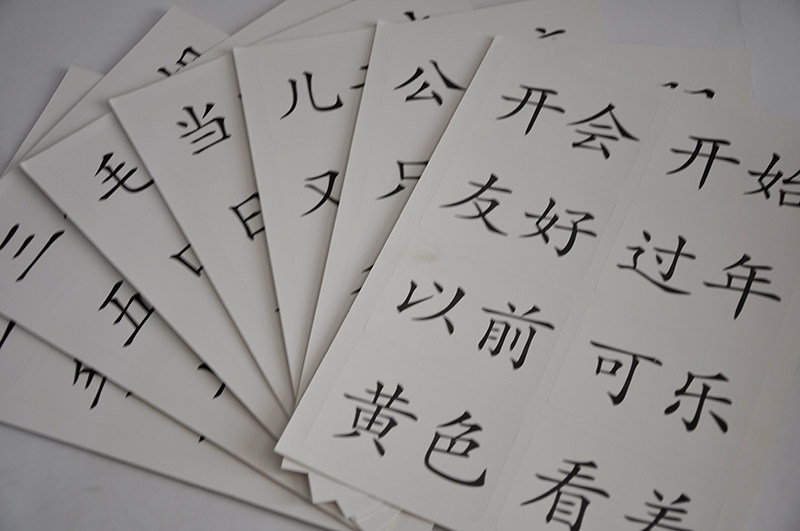 开会 开始
友好 过年
以前 可乐
黄色 看
公
只
儿
又
当
日
毛
口
三
五